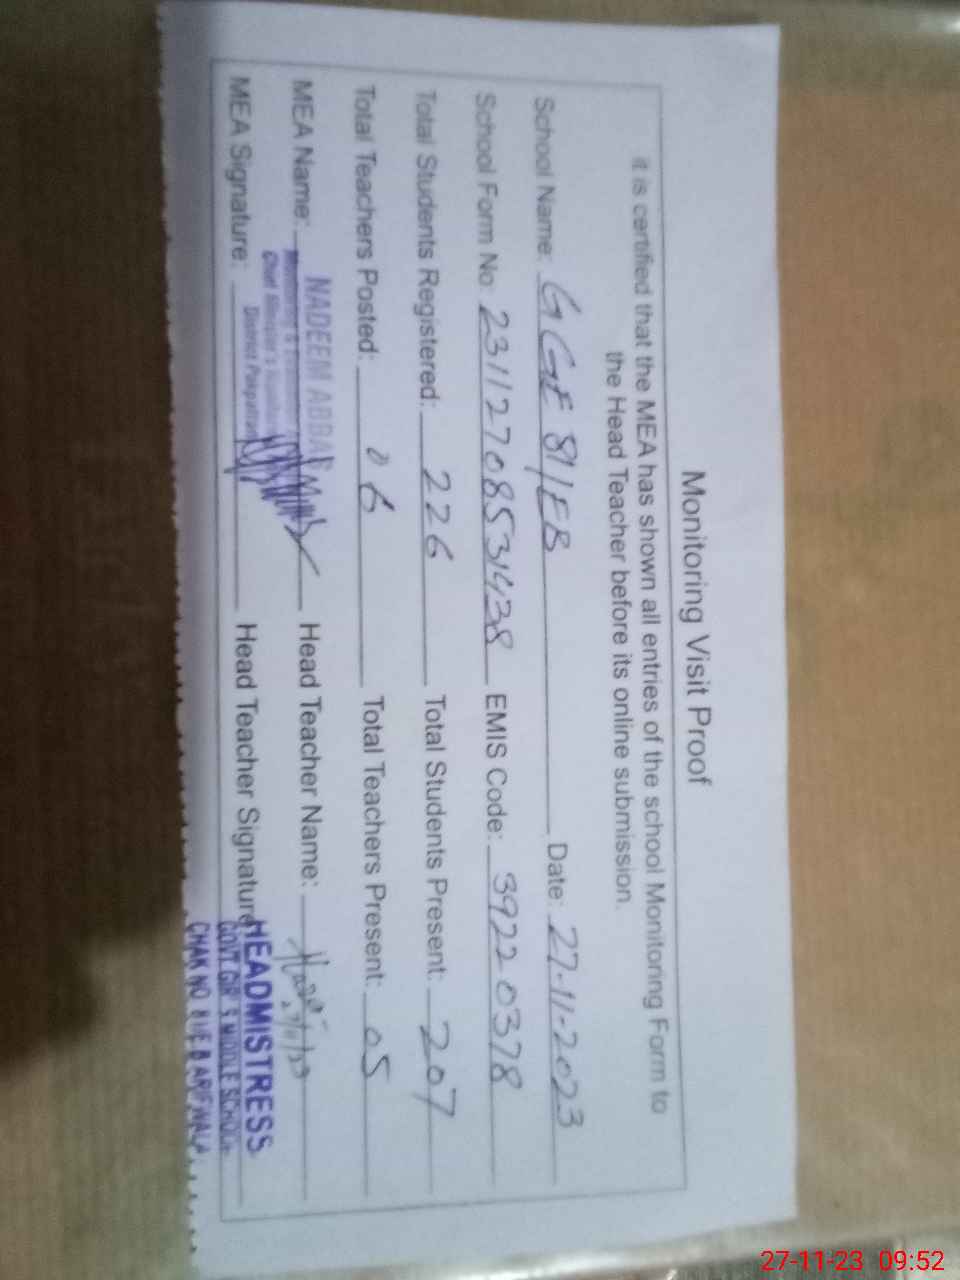 Monitoring Visit Proof
it is certified that the MEA has shown all entries of the school Monitoring Form to
the Head Teacher before its online submission.
School Name: GGE 81/EB Date: 27-11-2023
School Form No: 23112708531438 EMIS Code: 39220378
Total Students Registered: 226 Total Students Present: 207
Total Teachers Posted: 06 Total Teachers Present: 05
MEA Name: NADEEM ABBAS Head Teacher Name:
Monitoring & Evaluation
District Pakpattan
MEA Signature: Head Teacher Signature
HEADMISTRESS
GOVT. GIRLS MIDDLE SCHOOL
CHAK NO 81/E.B ARIFWALA
27-11-23 09:52